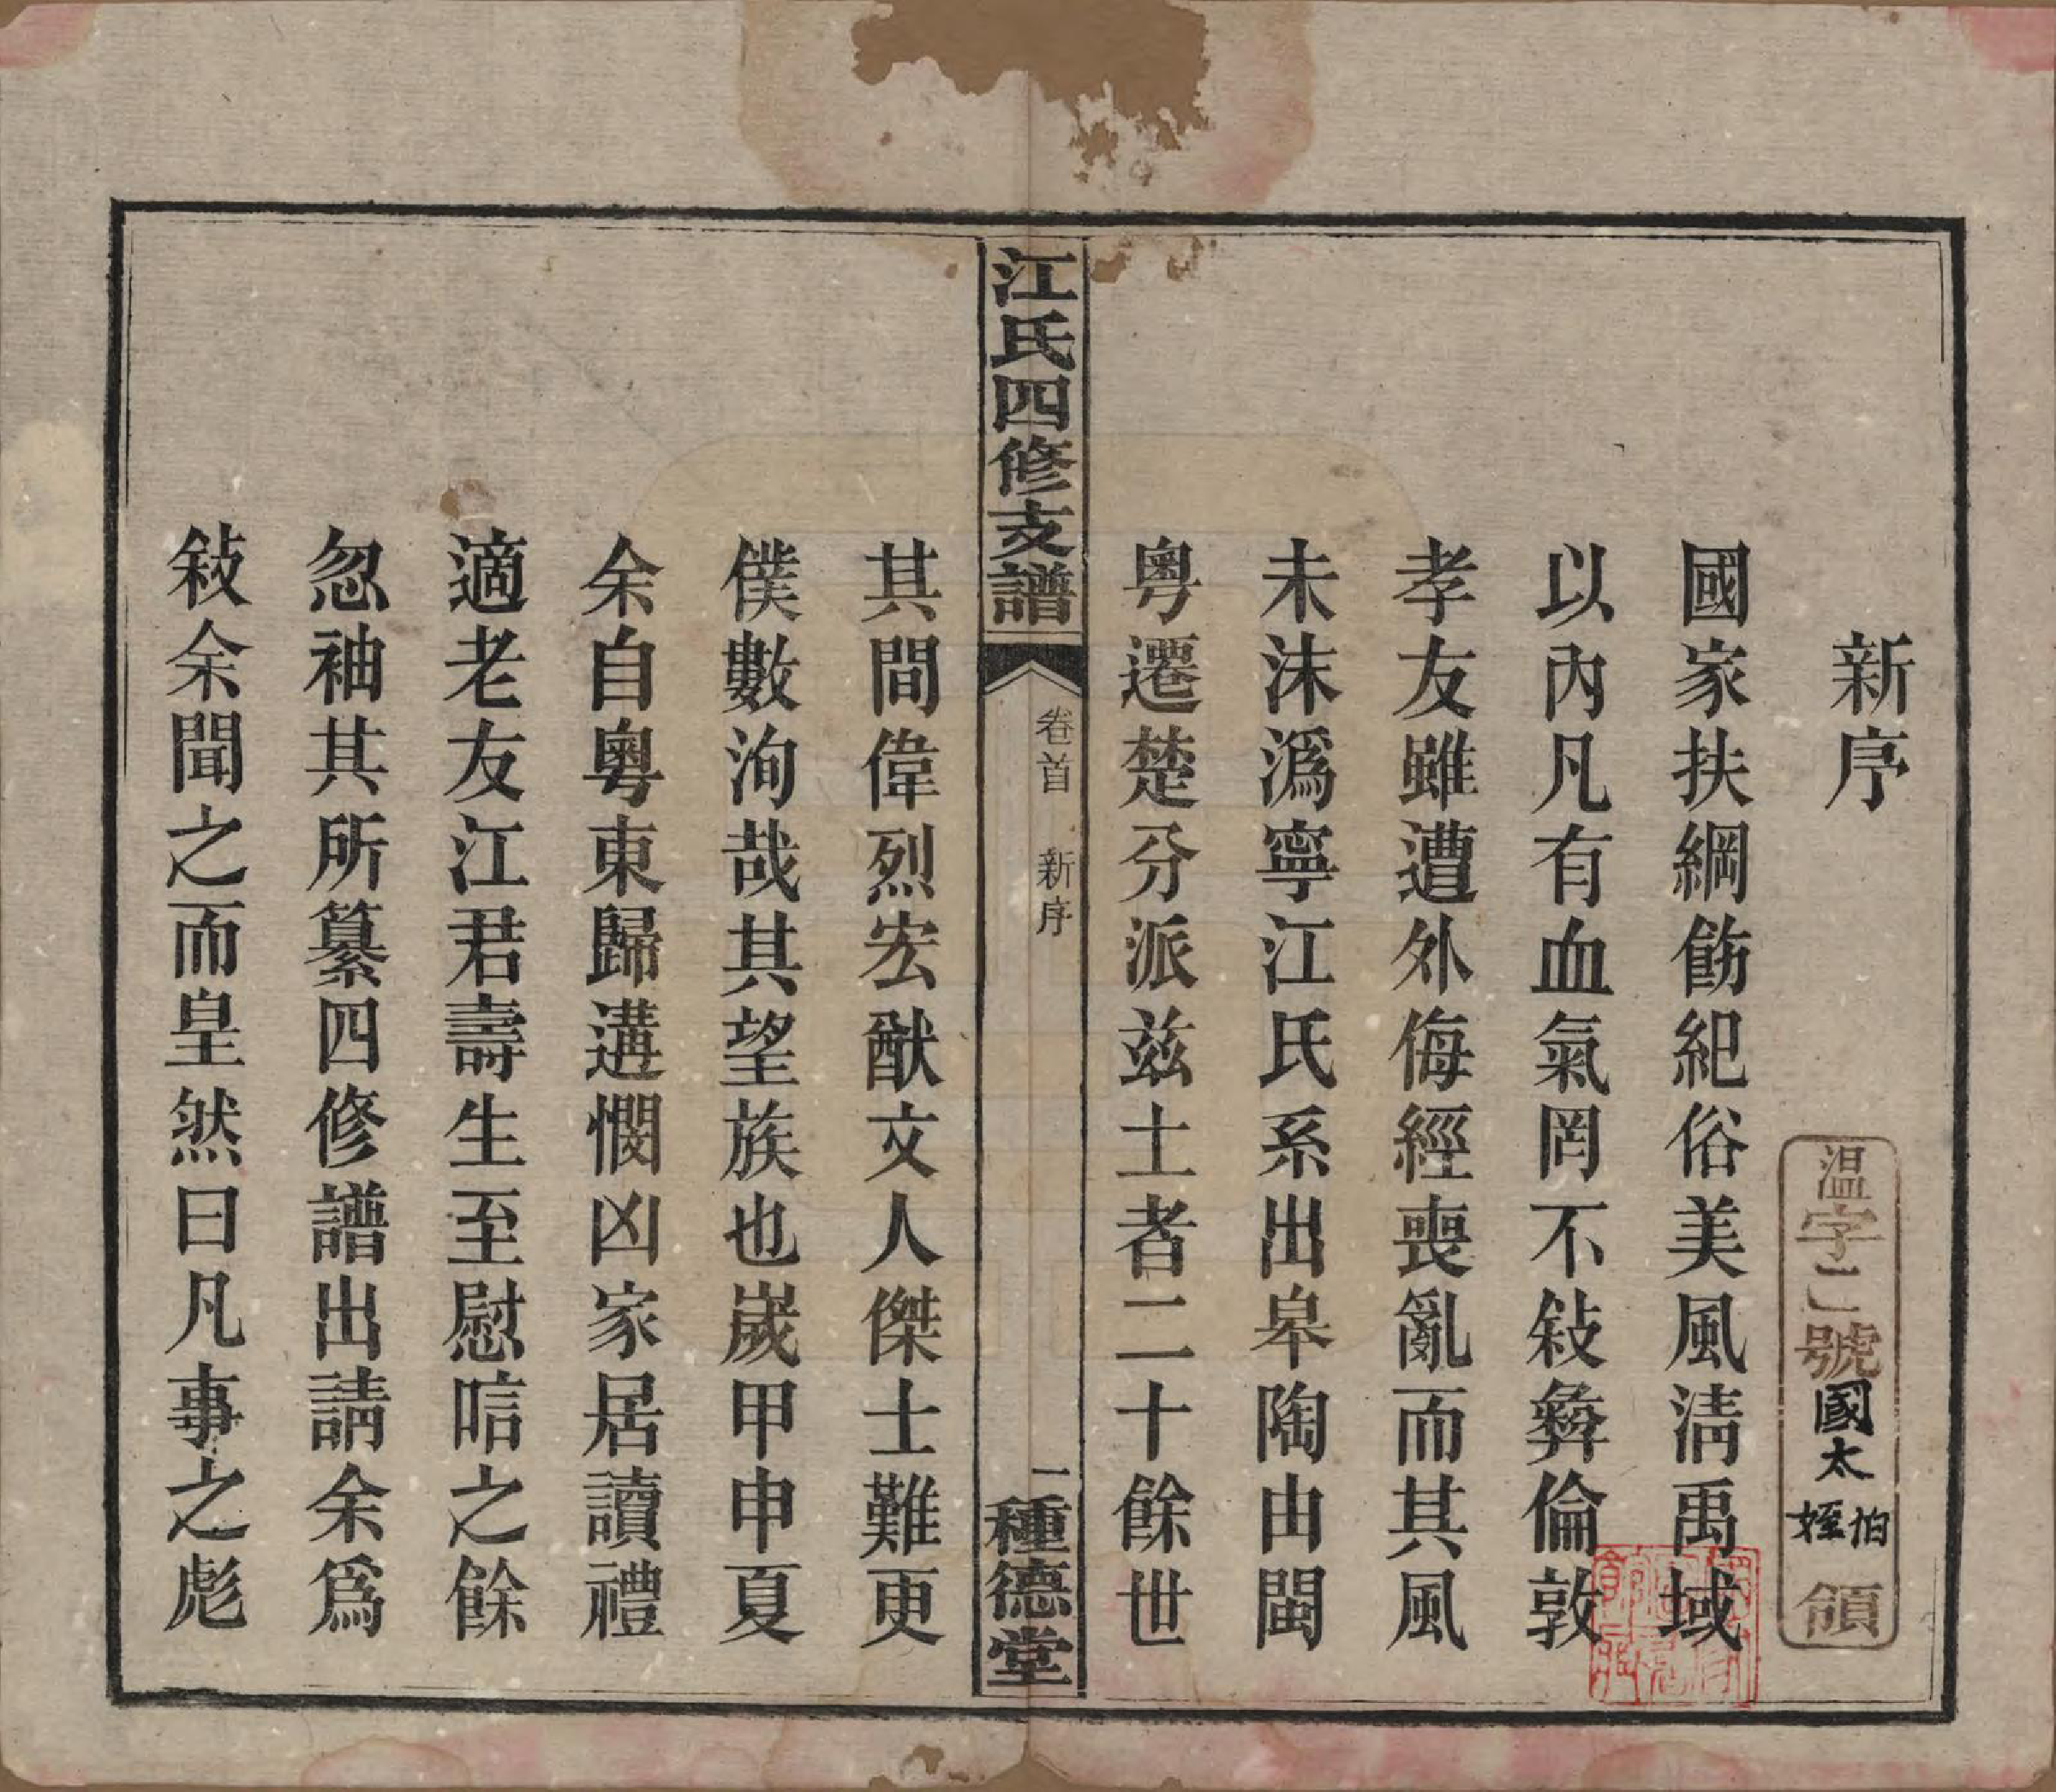 新序
温字一號國太伯姪領
國家扶綱飭紀俗美風淸禹域
以內凡有血氣罔不敍彝倫敦
孝友雖遭外侮經喪亂而其風
未沫溈寧江氏系出皋陶由閩
粵遷楚分派玆土者二十餘世
江氏四修支譜
卷首 新序
一
種德堂
其間偉烈宏猷文人傑士難更
僕數洵哉其望族也歲甲申夏
余自粵東歸遘憫凶家居讀禮
適老友江君壽生至慰唁之餘
忽袖其所纂四修譜出請余爲
敍余聞之而皇然曰凡事之彪